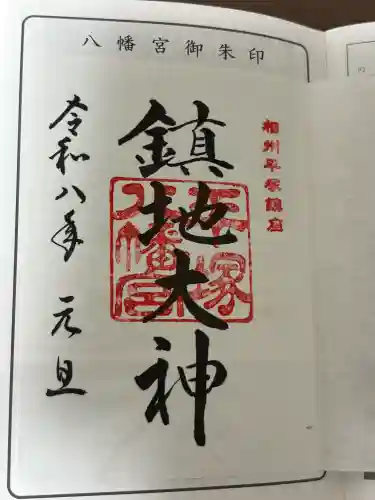 八幡宮御朱印
相州平塚鎮座
鎮地大神
平塚八幡宮
令和八年 元旦